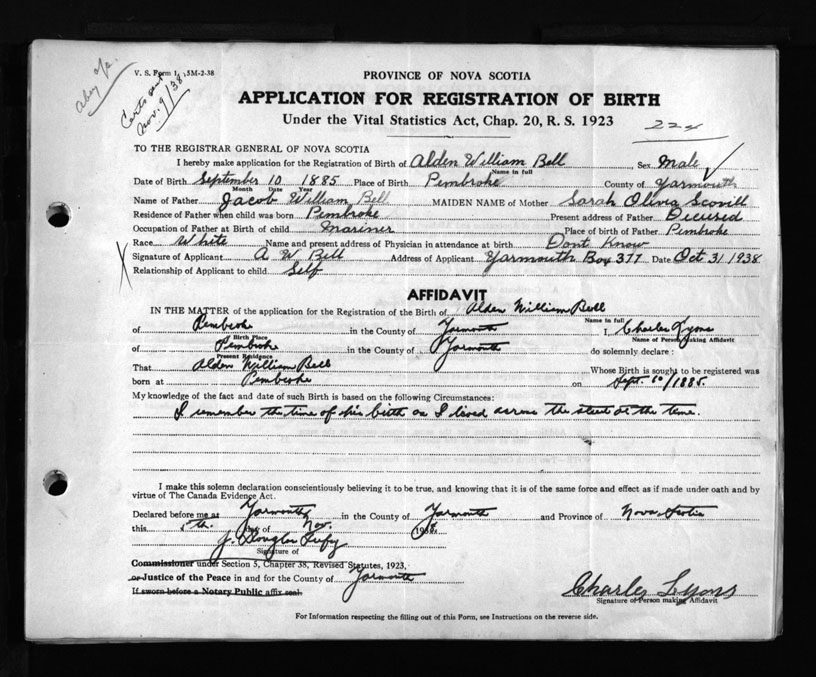 V. S. Form 1, 5M-2-38
Certs sent
Nov. 9/38
PROVINCE OF NOVA SCOTIA
APPLICATION FOR REGISTRATION OF BIRTH
Under the Vital Statistics Act, Chap. 20, R. S. 1923
TO THE REGISTRAR GENERAL OF NOVA SCOTIA
I hereby make application for the Registration of Birth of Alden William Bell Sex Male
Name in full
Date of Birth September 10 1885 Place of Birth Pembroke County of Yarmouth
Month Date Year
Name of Father Jacob William Bell MAIDEN NAME of Mother Sarah Olivia Scovill
Residence of Father when child was born Pembroke Present address of Father Decused
Occupation of Father at Birth of child Mariner Place of birth of Father Pembroke
Race White Name and present address of Physician in attendance at birth Dont Know
Signature of Applicant A W Bell Address of Applicant Yarmouth Box 377 Date Oct 31 1938
Relationship of Applicant to child Self
AFFIDAVIT
IN THE MATTER of the application for the Registration of the Birth of Alden William Bell
Name in full
of Pembroke in the County of Yarmouth I, Charles Lyons
Birth Place Name of Person Making Affidavit
of Pembroke in the County of Yarmouth do solemnly declare:
Present Residence
That Alden William Bell Whose Birth is sought to be registered was
born at Pembroke on Sept. 10/1885.
My knowledge of the fact and date of such Birth is based on the following Circumstances:
I remember the time of his birth as I lived across the street at the time.
I make this solemn declaration conscientiously believing it to be true, and knowing that it is of the same force and effect as if made under oath and by
virtue of The Canada Evidence Act.
Declared before me at Yarmouth in the County of Yarmouth and Province of Nova Scotia
this 5th day of Nov. 1938
J. Douglas
Signature of
Commissioner under Section 5, Chapter 38, Revised Statutes, 1923,
or Justice of the Peace in and for the County of Yarmouth
If sworn before a Notary Public affix seal.
Charles Lyons
Signature of Person making Affidavit
For Information respecting the filling out of this Form, see Instructions on the reverse side.